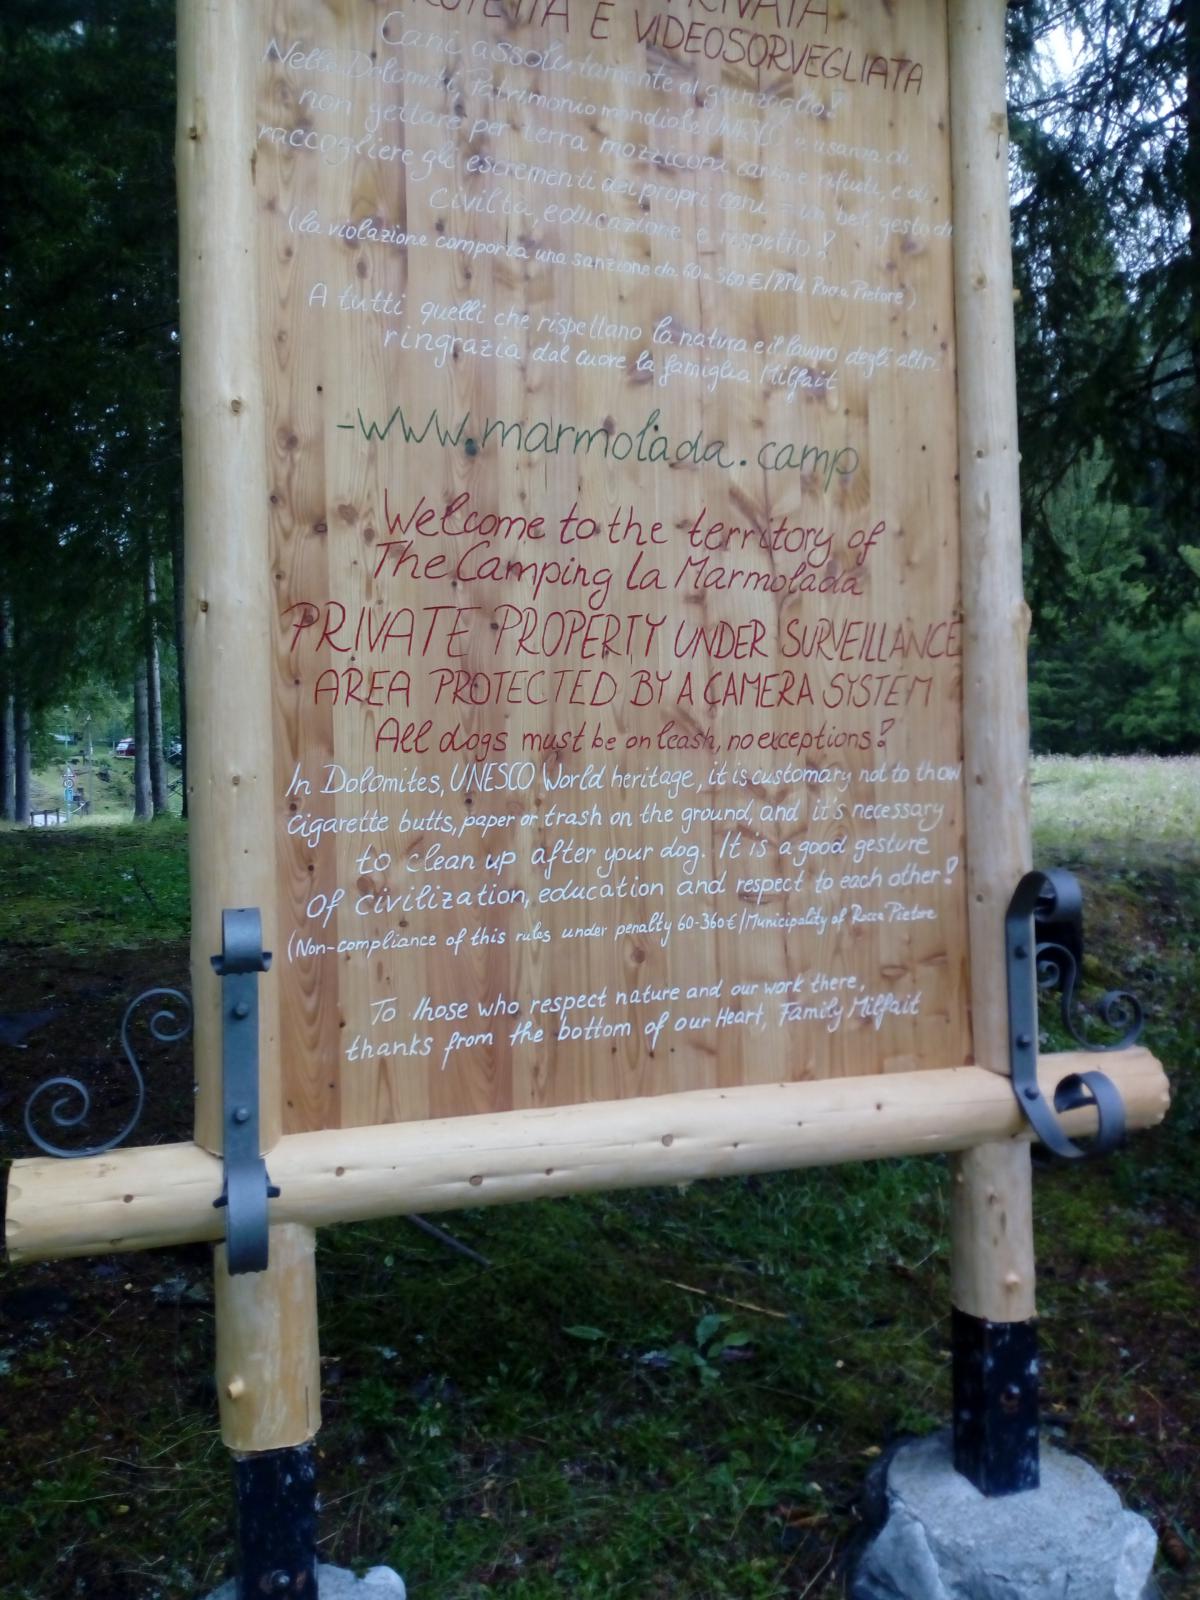 PRIVATA
PROTETTA E VIDEOSORVEGLIATA
Cani assolutamente al guinzaglio!
Nelle Dolomiti, Patrimonio mondiale UNESCO, è usanza di
non gettare per terra mozziconi carta e rifiuti, e di
raccogliere gli escrementi dei propri cani = un bel gesto di
civiltà, educazione e rispetto!
(la violazione comporta una sanzione da 60 a 360 €/RPU Rocca Pietore)
A tutti quelli che rispettano la natura e il lavoro degli altri
ringrazia dal cuore la famiglia Milfait
-www.marmolada.camp
Welcome to the territory of
The Camping La Marmolada
PRIVATE PROPERTY UNDER SURVEILLANCE
AREA PROTECTED BY A CAMERA SYSTEM
All dogs must be on leash, no exceptions!
In Dolomites, UNESCO World heritage, it is customary not to thow
cigarette butts, paper or trash on the ground, and it's necessary
to clean up after your dog. It is a good gesture
of civilization, education and respect to each other!
(Non-compliance of this rules under penalty 60-360€/Municipality of Rocca Pietore
To those who respect nature and our work there,
thanks from the bottom of our Heart, Family Milfait